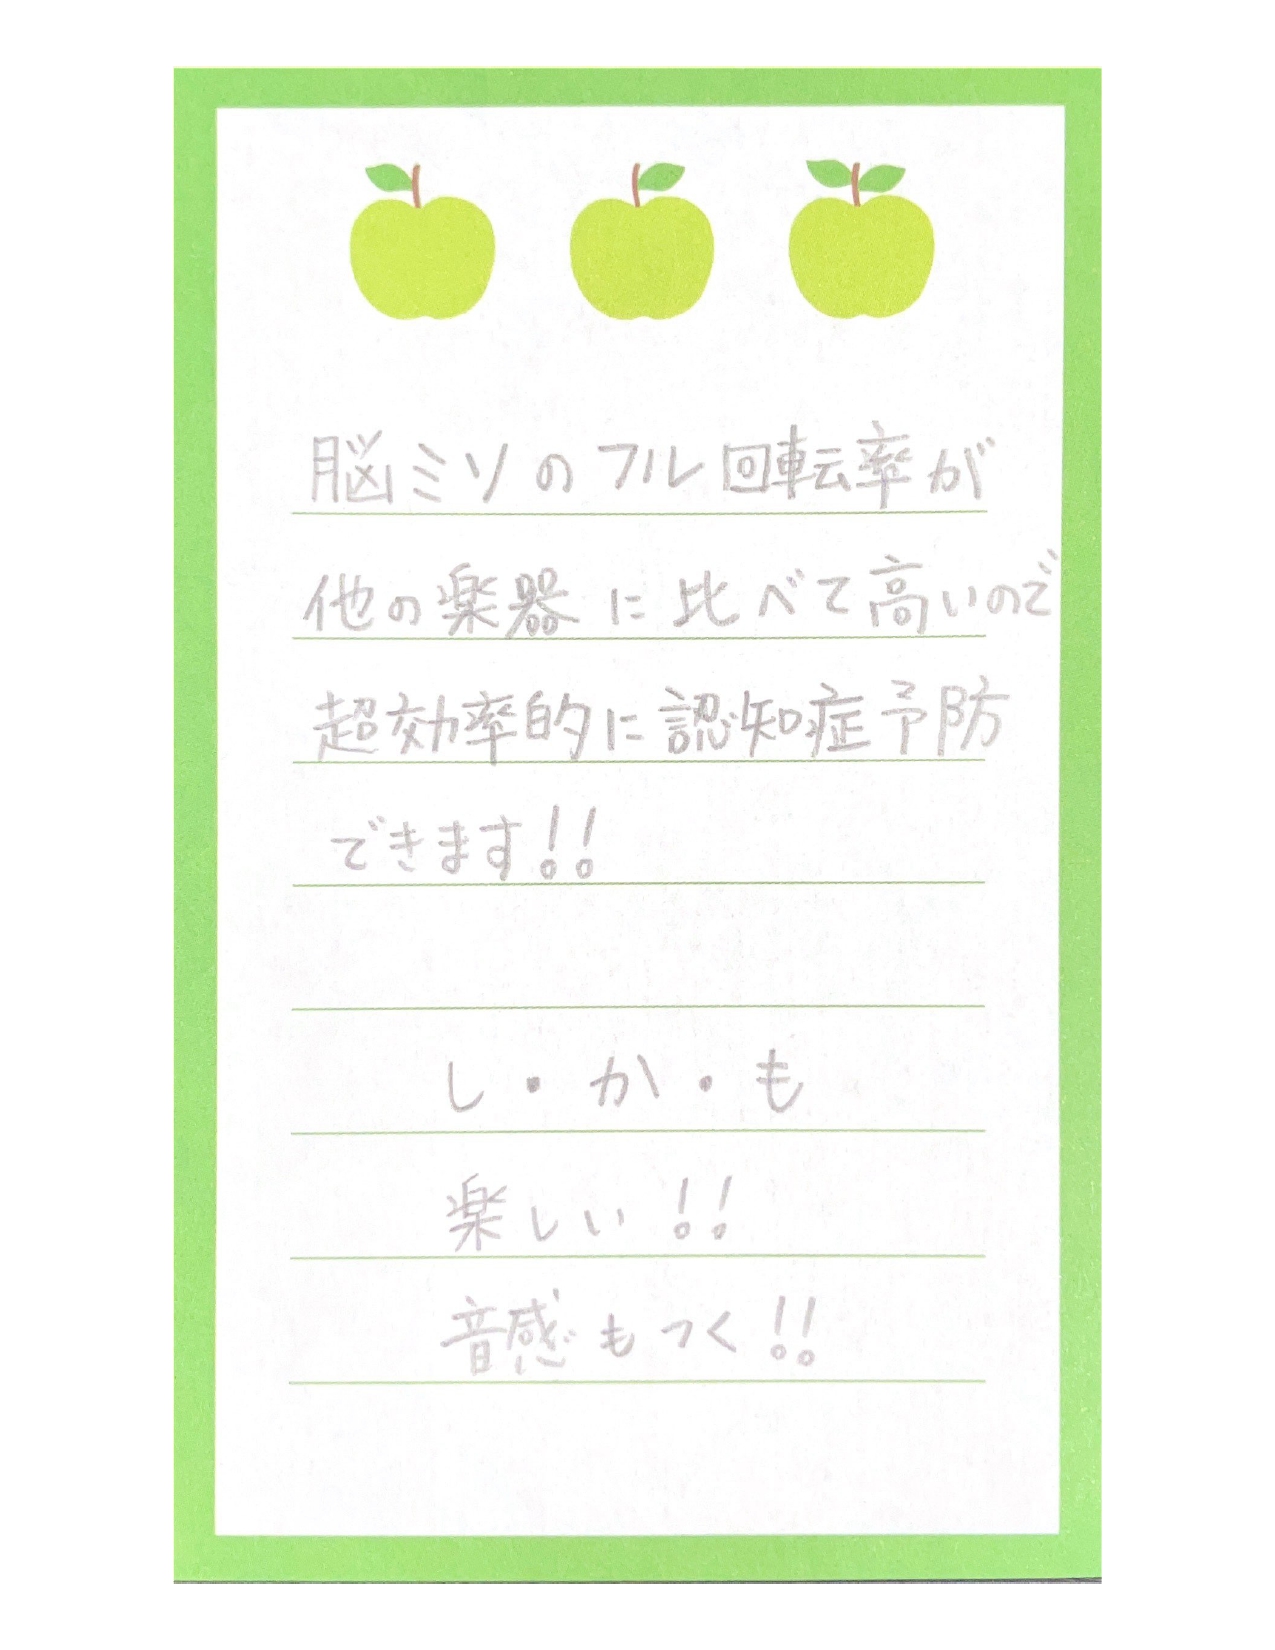 脳ミソのフル回転率が
他の楽器に比べて高いので
超効率的に認知症予防
できます!!
し・か・も
楽しい!!
音感もつく!!